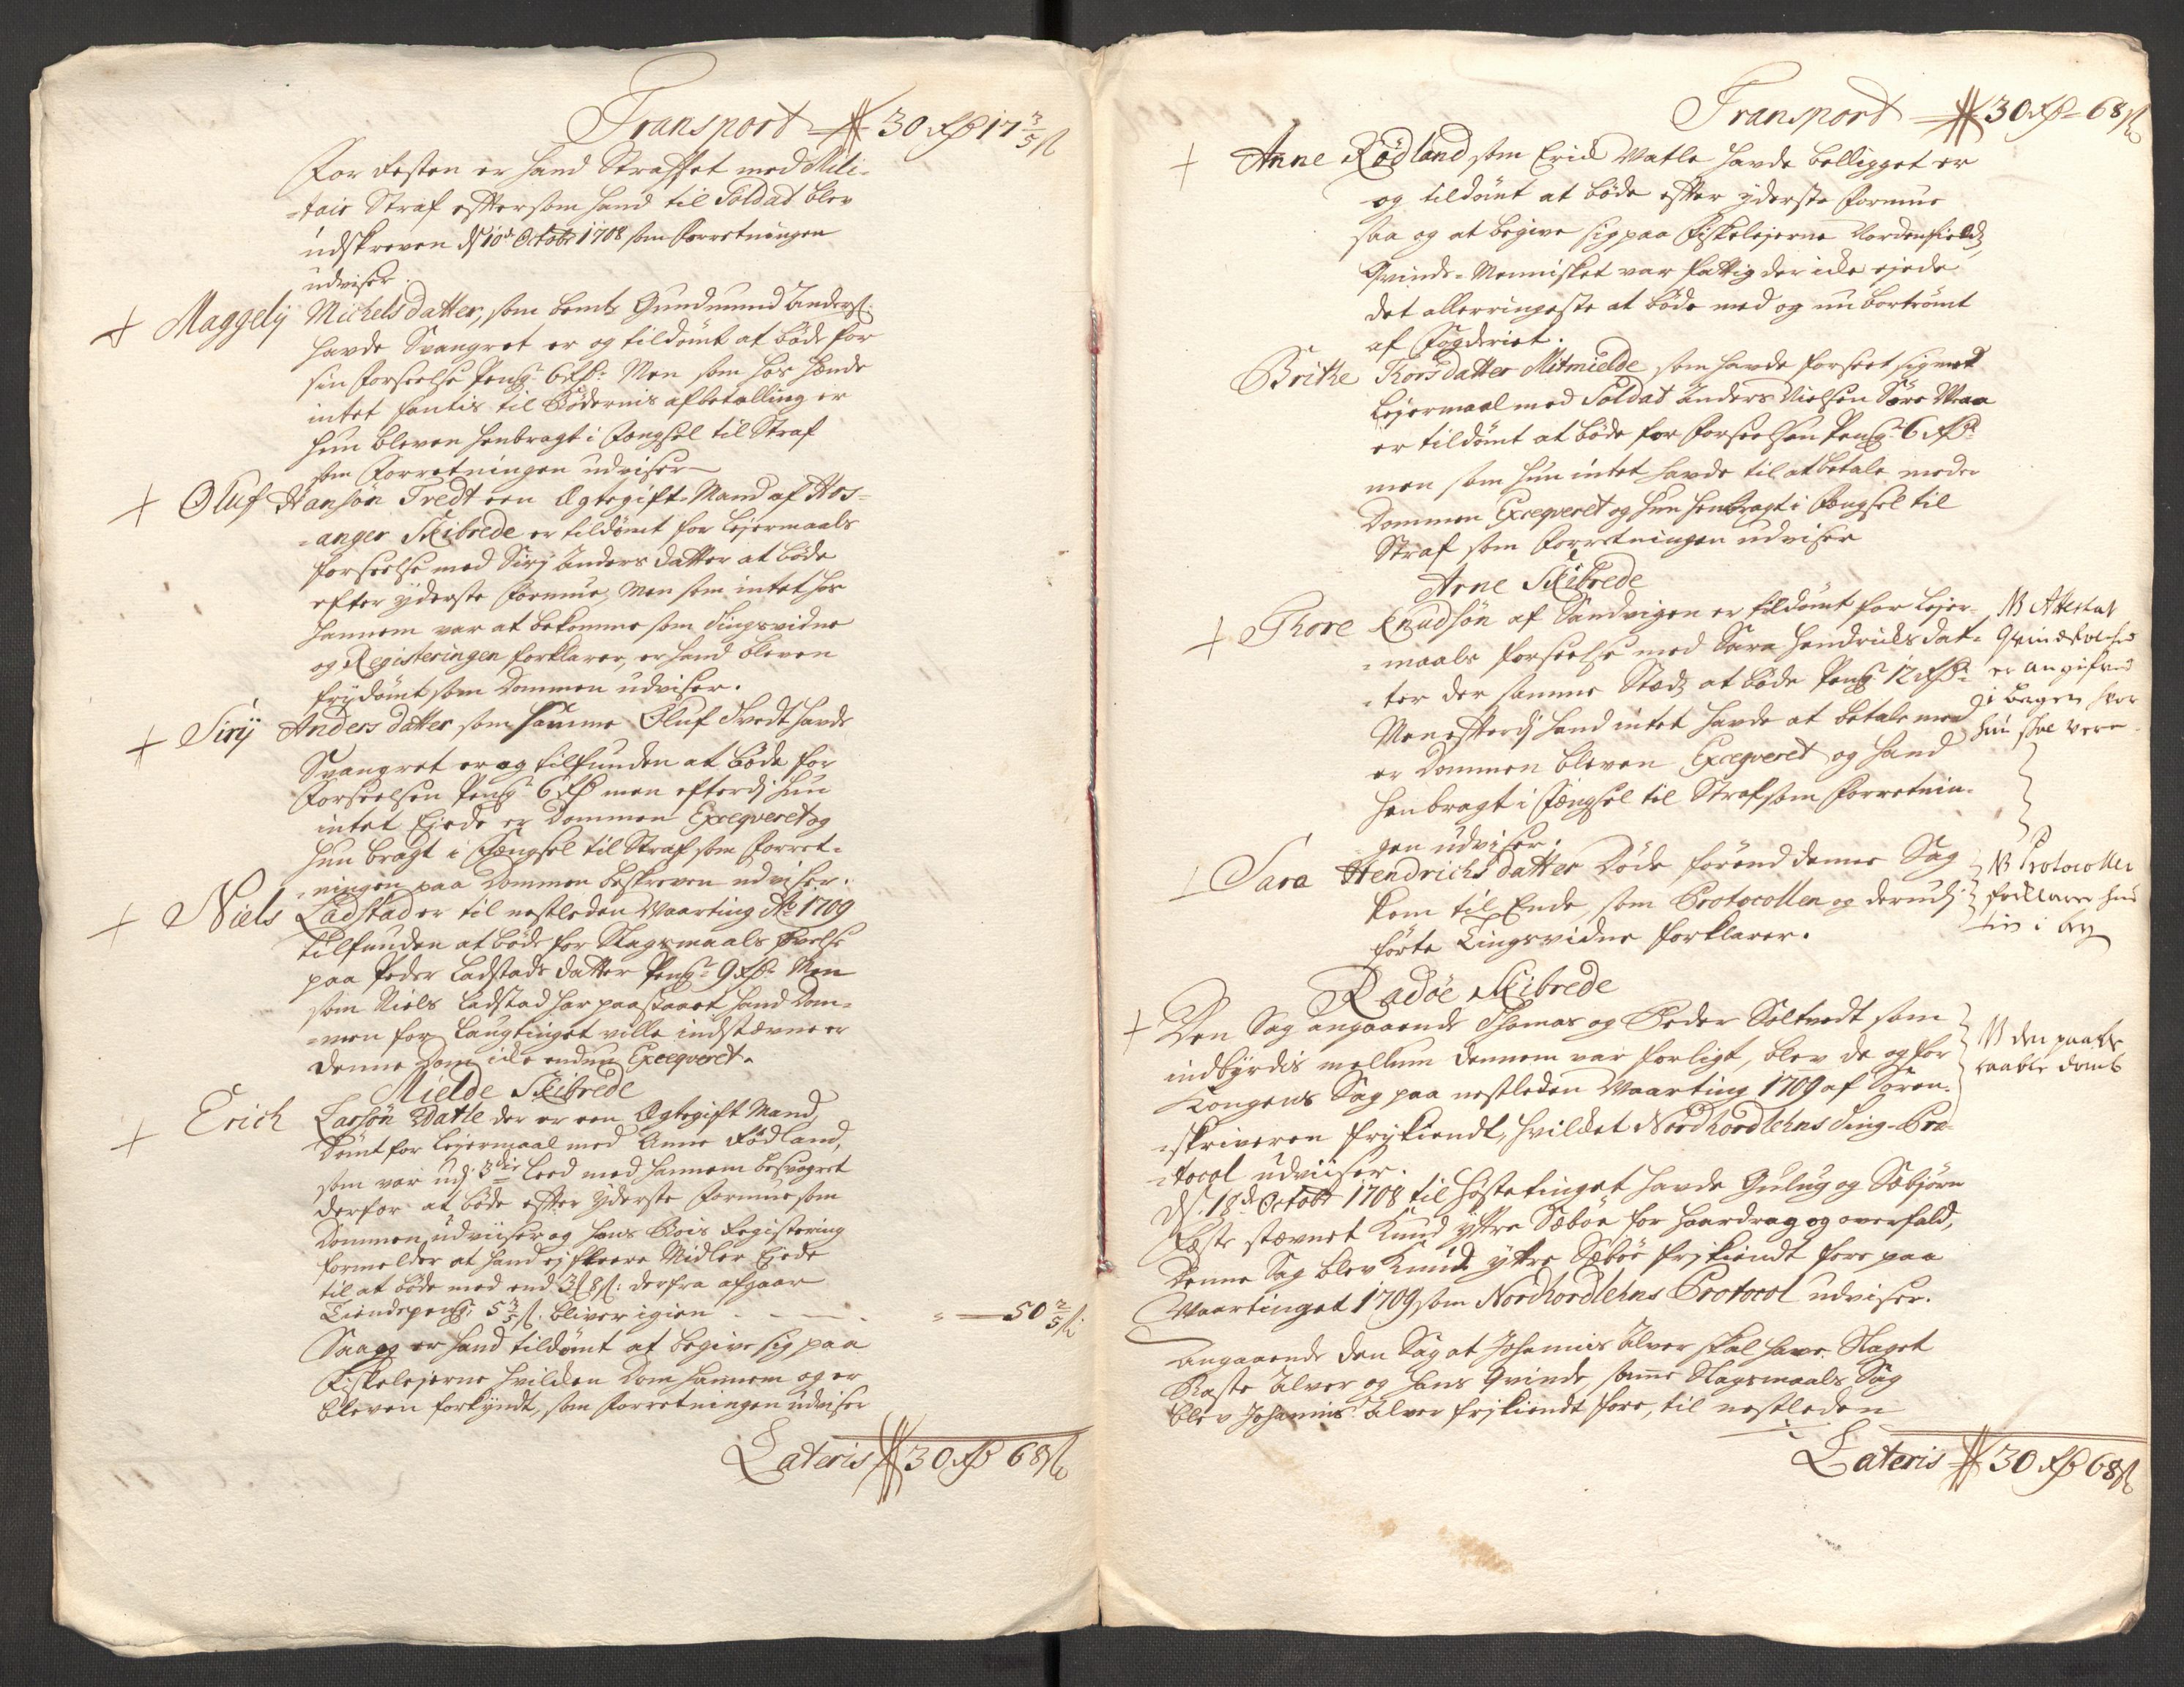 Transport 30 rdr 17 3/5 s
For resten er hand Straffet med Mili-
-taie Straf effter som hand til Soldat blev
udskreven ds 10de Octobr 1708 som Forretningen
udviser
+ Maggelj Michelsdatter, som bemte Gundmund Anders:
hafde Svangret er og tildømt at bøde for
sin forseelse Peng 6 rdr: Men som hos hende
intet fantis til Bødernis afbetalling er
hun bleven henbragt i Fengsel til Straf
som Forretningen udviser
+ Oluf Hansøn Tvedt een Egtegift Mand af Hos-
-anger Skibrede er tildømt for lejermaals
forseelse med Sirj Anders datter at bøde
efter yderste Formue, Men som intet hos
hannem var at bekomme som Tingsvidne
og Registeringen forklarer, er hand bleven
frydømt som Dommen udviser.
+ Sirij Andersdatter som samme Oluf Tvedt hafde
Svangret er og tilfunden at bøde for
Forseelsen Peng 6 rdr men efterdj hun
intet Ejede er Dommen Exeqveret og
hun bragt i Fengsel til Straf som Forret-
-ningen paa Dommen beskreven udviser.
+ Niels Ladstad er til nestleden Waarting Ao 1709
tilfunden at bøde for Slagsmaals øvelse
paa Peder Ladstads datter Peng 9 rdr: Men
som Niels Ladstad har paastaaet hand Dom-
-men for Laugtinget ville indstævne er
denne Dom icke endnu Exeqveret.
Mielde Skibrede
+ Erich Larsøn Watle der er een Egtegift Mand,
dømt for lejermaal med Anne Rødland,
som var udj 3die leed med hannem besvogret
derfor at bøde effter yderste Formue som
Dommen udviiser og hans Bois Registering
formelder at hand ej fleere Midler Ejede
til at bøde med end 3 8 s: derfra afgaar
Tiendepeng: 5 3/5 s. bliver igien - - - 50 2/5 s
Saa og er hand tildømt at begive sig paa
Fiskelejerne hvilken Dom hannem og er
bleven forkyndt, som Forretningen udviser
Lateris 30 rdr 68 s
Transport 30 rdr 68 s
+ Anne Rødland som Erich Watle hafde belligget er
og tildømt at bøde effter yderste Formue
saa og at begive sig paa Fiskelejerne Nordenfields,
Qvinde-Mennisket var fattig der icke ejede
det allerringeste at bøde med og nu bortrømt
af Fogderiet.
Brithe Thorsdatter Mitmielde som hafde forseet sig med
lejermaal med Soldat Anders Nielsen Søre Wraa
er tildømt at bøde for forseelsen Peng 6 rdr
men som hun intet hafde til at betale med er
Dommen Exeqveret og hun henbragt i Fengsel til
Straf som Forretningen udviser
Arne Skibrede
+ Thore Knudsøn af Sandvigen er tildømt for lejer-
-maals forseelse med Sara Hendrichs dat-
-ter der samme Steds at bøde Peng 12 rdr:
Men efterdj hand intet hafde at betale med
er Dommen bleven Exeqveret og hand
henbragt i Fengsel til Straf som Forretnin-
gen udviser.
NB Attestat
Qvindfolched
er angifved
i bagen hvor
hun skal vere
Sara Hendrichsdatter Døde førend denne Sag
kom til Ende, som Protocollen og derudj
førte Tingsvidne forklarer.
NB Protocollen
forklarer hun
Radøe Skibrede
+ Den Sag angaaende Thomas og Peder Soltvedt som
indbyrdis mellum dennem var forligt, blev de og for
Kongens Sag paa nestleden Waarting 1709 af Soren-
-skriveren frykiendt, hvilket Nordhordlehns Ting-Pro-
-tocol udviiser.
NB den paa be
raabte domb
Ds. 18de Octobr 1708 til Høstetinget hafde Gulug og Sebjørn
Røste stævnet Knud yttre Sæbøe for haardrag og overfald,
denne Sag blev Knud yttre Sæbøe frykiendt fore paa
Waartinget 1709 som Nordhordlehns Protocol udviser.
Angaaende den Sag at Johannis Alver skal have Slaget
Raste Alver og hans Qvinde, samme Slagsmaals Sag
blev Johannis Alver frykiendt fore, til nestleden
Lateris 30 rdr 68 s